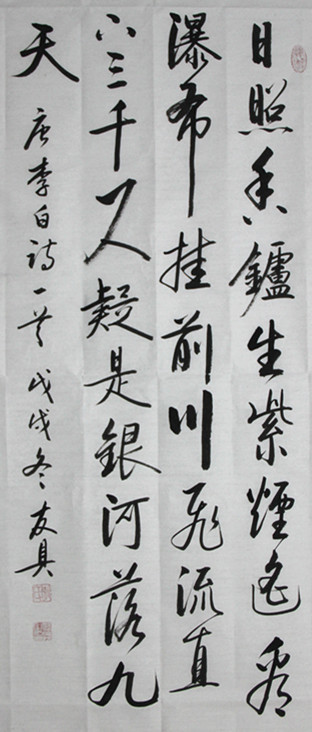 日照香鑪生紫煙遙看
瀑布挂前川飛流直
下三千尺疑是銀河落九
天
唐李白詩一首戊戌冬友具